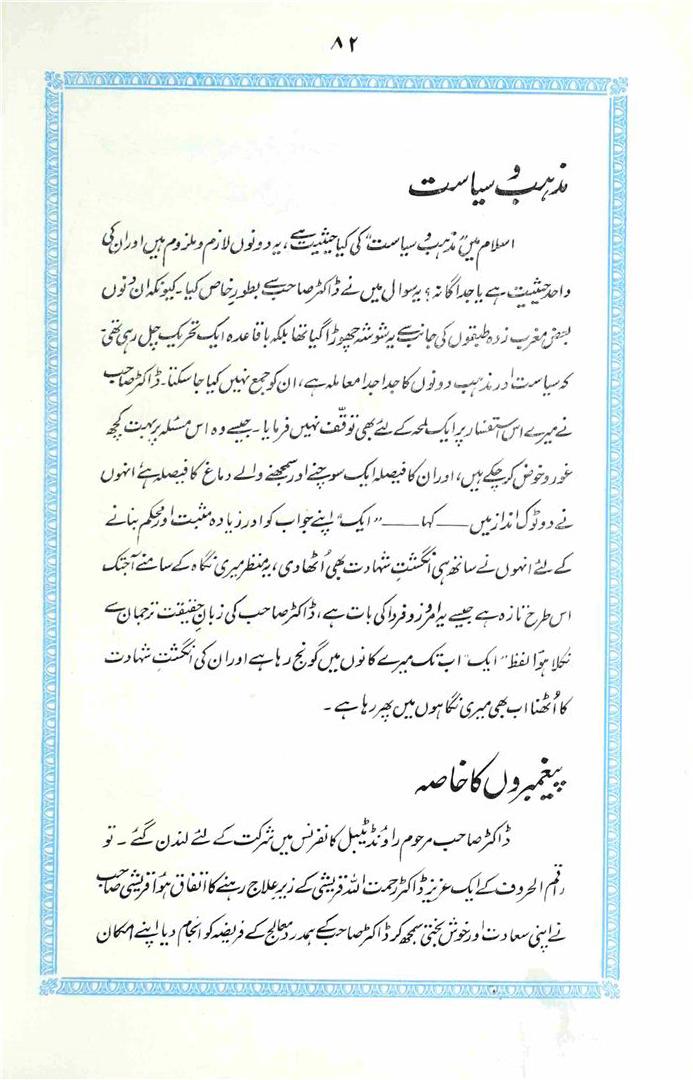 ۸۲
مذہب و سیاست
اسلام میں "مذہب و سیاست" کی کیا حیثیت ہے، یہ دونوں لازم و ملزوم ہیں اور ان کی
واحد حیثیت ہے یا جداگانہ؟ یہ سوال میں نے ڈاکٹر صاحب سے بطورِ خاص کیا۔ کیونکہ ان دنوں
بعض مغرب زدہ طبقوں کی جانب سے یہ شوشہ چھوڑا گیا تھا بلکہ باقاعدہ ایک تحریک چل رہی تھی۔
کہ سیاست اور مذہب دونوں کا جدا جدا معاملہ ہے، ان کو جمع نہیں کیا جا سکتا۔ ڈاکٹر صاحب
نے میرے اس استفسار پر ایک لمحہ کے لئے بھی توقّف نہیں فرمایا۔ جیسے وہ اس مسئلہ پر بہت کچھ
غور و خوض کر چکے ہیں، اور ان کا فیصلہ ایک سوچنے اور سمجھنے والے دماغ کا فیصلہ ہے انہوں
نے دو ٹوک انداز میں ـــــ کہا ـــــ "ایک" اپنے جواب کو اور زیادہ مثبت اور محکم بنانے
کے لئے انہوں نے ساتھ ہی انگشتِ شہادت بھی اُٹھا دی، یہ منظر میری نگاہ کے سامنے آجتک
اس طرح تازہ ہے جیسے یہ امروز و فردا کی بات ہے، ڈاکٹر صاحب کی زبانِ حقیقت ترجمان سے
نکلا ہوٗا لفظ "ایک" اب تک میرے کانوں میں گونج رہا ہے اور ان کی انگشتِ شہادت
کا اُٹھنا اب بھی میری نگاہوں میں پھر رہا ہے۔
پیغمبروں کا خاصہ
ڈاکٹر صاحب مرحوم راؤنڈ ٹیبل کانفرنس میں شرکت کے لئے لندن گئے۔ تو
راقم الحروف کے ایک عزیز ڈاکٹر رحمت اللہ قریشی کے زیرِ علاج رہنے کا اتفاق ہوٗا قریشی صاحب
نے اپنی سعادت اور خوش بختی سمجھ کر ڈاکٹر صاحب کے ہمدرد معالج کے فریضہ کو انجام دیا اپنے امکان